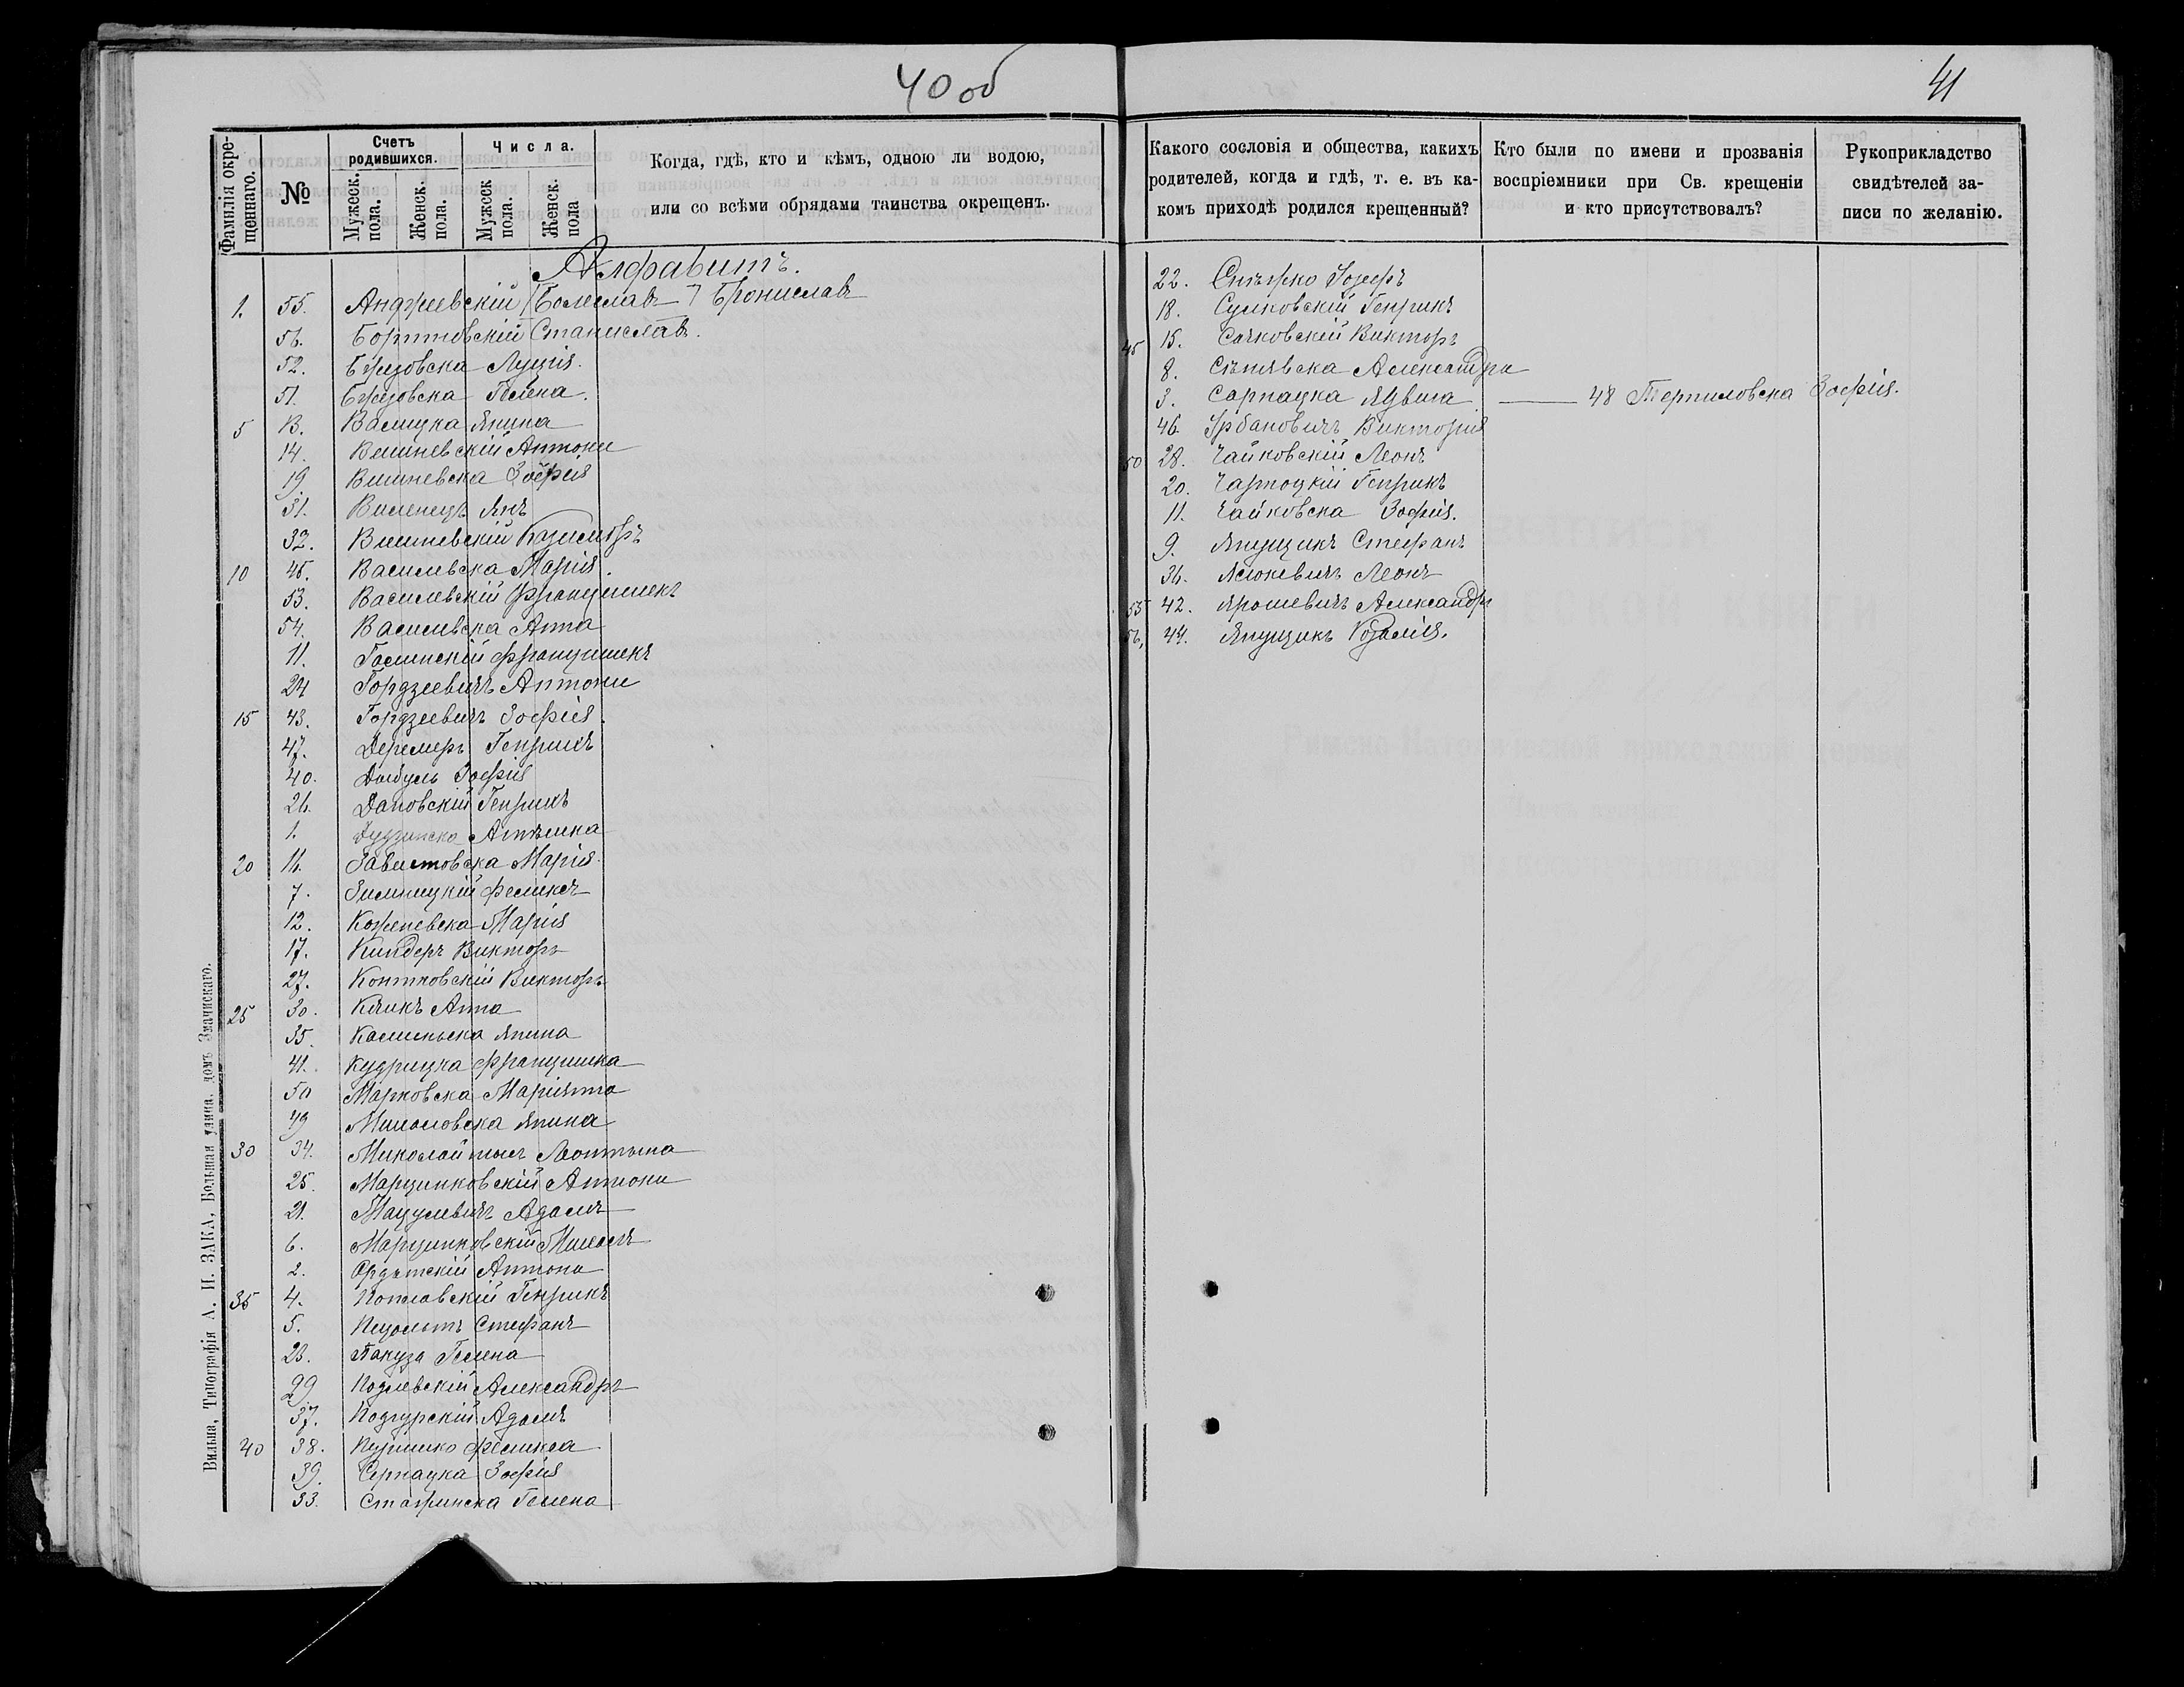 40 об
Фамилія окре-
щеннаго.
№
Счетъ
родившихся.
Мужеск.
пола.
Женск.
пола.
Числа.
Мужеск
пола.
Женск.
пола
Когда, гдѣ, кто и кѣмъ, одною ли водою,
или со всѣми обрядами таинства окрещенъ.
Алфавитъ.
1. 55. Андржеевскій Болеслав Бронислав
56. Бортновскій Станислав.
52. Бржозовска Луція.
51. Бржозовска Гелена.
5 13. Валицка Янина
14. Вишневскій Антони
19. Вишневска Зофія
31. Виленецъ Янъ
32. Вишневскій Казимиръ
10 45. Василевска Марія.
53. Василевскій Францишекъ
54. Василевска Анна
11. Госпинскій Францишекъ
24 Гордзеевичъ Антони
15 43. Гордзеевичъ Зофія.
47. Деремеръ Генрикъ
40. Зофія
26. Дановскій Генрикъ
1. Дудзинска Антонина
20 16. Завистовска Марія
7. Зимницкій Феликсъ
12. Корженевска Марія
17. Киндеръ Викторъ
27. Контковскій Викторъ
25 30. Клинъ Анна
35. Каминьска Янина
41. Кудрицка Францишка
50 Марковска Маріянна
49 Миналовска Янина
30 34. Миколайтысъ Леонтына
25. Марцинковскій Антони
21. Мацулевичъ Адамъ
6. Марцинковскій Михалъ
2. Антони
35 4. Потлавскій Генрикъ
5. Пецольтъ Стефанъ
23. Пакуза Гелена
29 Подлевскій Александръ
37. Подгурскій Адамъ
40 38. Феликса
39. Серпацка Зофія
33. Стаžинска Гелена
Вильна, Типографія А. И. ЗАКА, Большая улица, домъ Значискаго.
41
Какого сословія и общества, какихъ
родителей, когда и гдѣ, т. е. въ ка-
комъ приходѣ родился крещенный?
Кто были по имени и прозванія
воспріемники при Св. крещеніи
и кто присутствовалъ?
Рукоприкладство
свидѣтелей за-
писи по желанію.
22. Снѣжко Іозефъ
18. Сулковскій Генрикъ
45 15. Сачковскій Викторъ
8. Александра
3. Сарнацка Ядвига 48 Терпиловска Зофія.
46. Урбановичъ Викторія
50 28. Чайковскій Леонъ
20. Чарноцкій Генрикъ
11. Чайковска Зофія.
9. Янущикъ Стефанъ
36. Яснюкевичъ Леонъ
55 42. Ярошевичъ Александр
56. 44. Янущикъ Розалія.